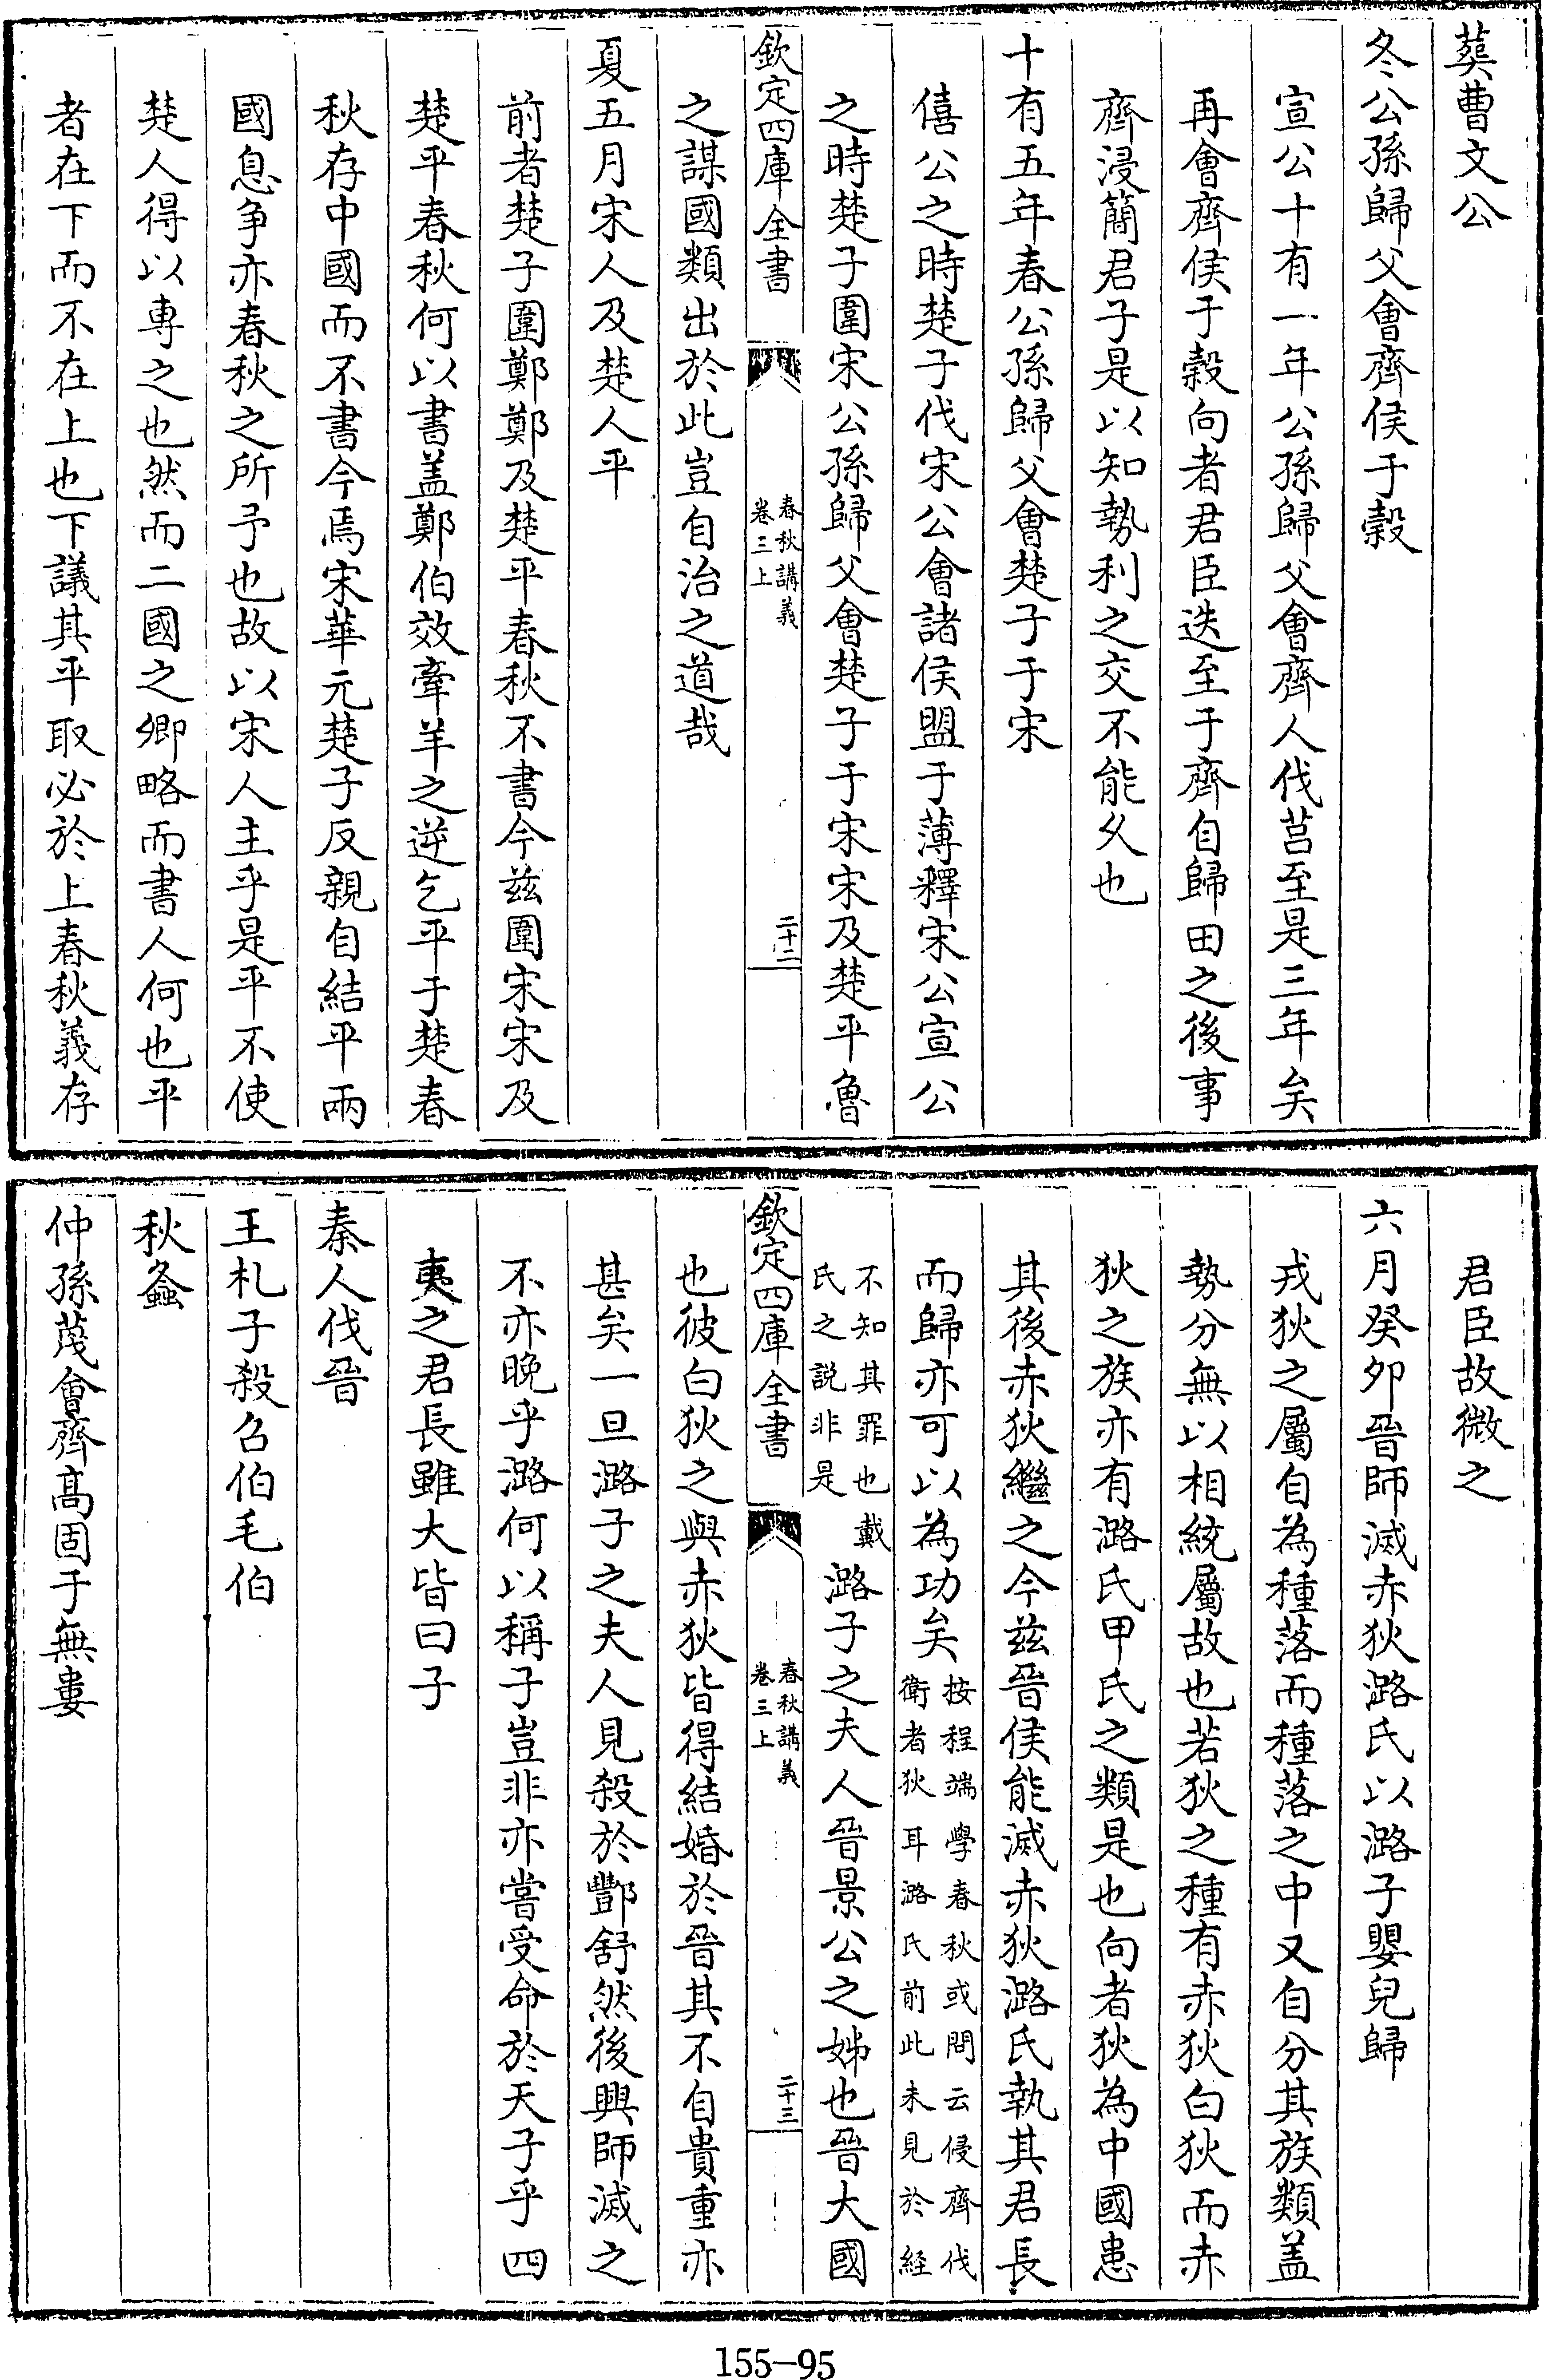 葬曹文公
冬公孫歸父會齊侯于榖
宣公十有一年公孫歸父會齊人伐莒至是三年矣
再會齊侯于榖向者君臣迭至于齊自歸田之後事
齊浸簡君子是以知勢利之交不能久也
十有五年春公孫歸父會楚子于宋
僖公之時楚子伐宋公會諸侯盟于薄釋宋公宣公
之時楚子圍宋公孫歸父會楚子于宋宋及楚平魯
欽定四庫全書
春秋講義
卷三上
二十二
之謀國類出於此豈自治之道哉
夏五月宋人及楚人平
前者楚子圍鄭鄭及楚平春秋不書今兹圍宋宋及
楚平春秋何以書盖鄭伯效牽羊之逆乞平于楚春
秋存中國而不書今焉宋華元楚子反親自結平兩
國息争亦春秋之所予也故以宋人主乎是平不使
楚人得以專之也然而二國之卿略而書人何也平
者在下而不在上也下議其平取必於上春秋義存
君臣故微之
六月癸卯晉師滅赤狄潞氏以潞子嬰兒歸
戎狄之屬自為種落而種落之中又自分其族類盖
勢分無以相統屬故也若狄之種有赤狄白狄而赤
狄之族亦有潞氏甲氏之類是也向者狄為中國患
其後赤狄繼之今兹晉侯能滅赤狄潞氏執其君長
而歸亦可以為功矣按程端學春秋或問云侵齊伐
衛者狄耳潞氏前此未見於経
不知其罪也戴
氏之説非是
潞子之夫人晉景公之姊也晉大國
欽定四庫全書
春秋講義
卷三上
二十三
也彼白狄之與赤狄皆得結婚於晉其不自貴重亦
甚矣一旦潞子之夫人見殺於酆舒然後興師滅之
不亦晚乎潞何以稱子豈非亦嘗受命於天子乎四
夷之君長雖大皆曰子
秦人伐晉
王札子殺召伯毛伯
秋螽
仲孫蔑會齊髙固于無婁
155-95